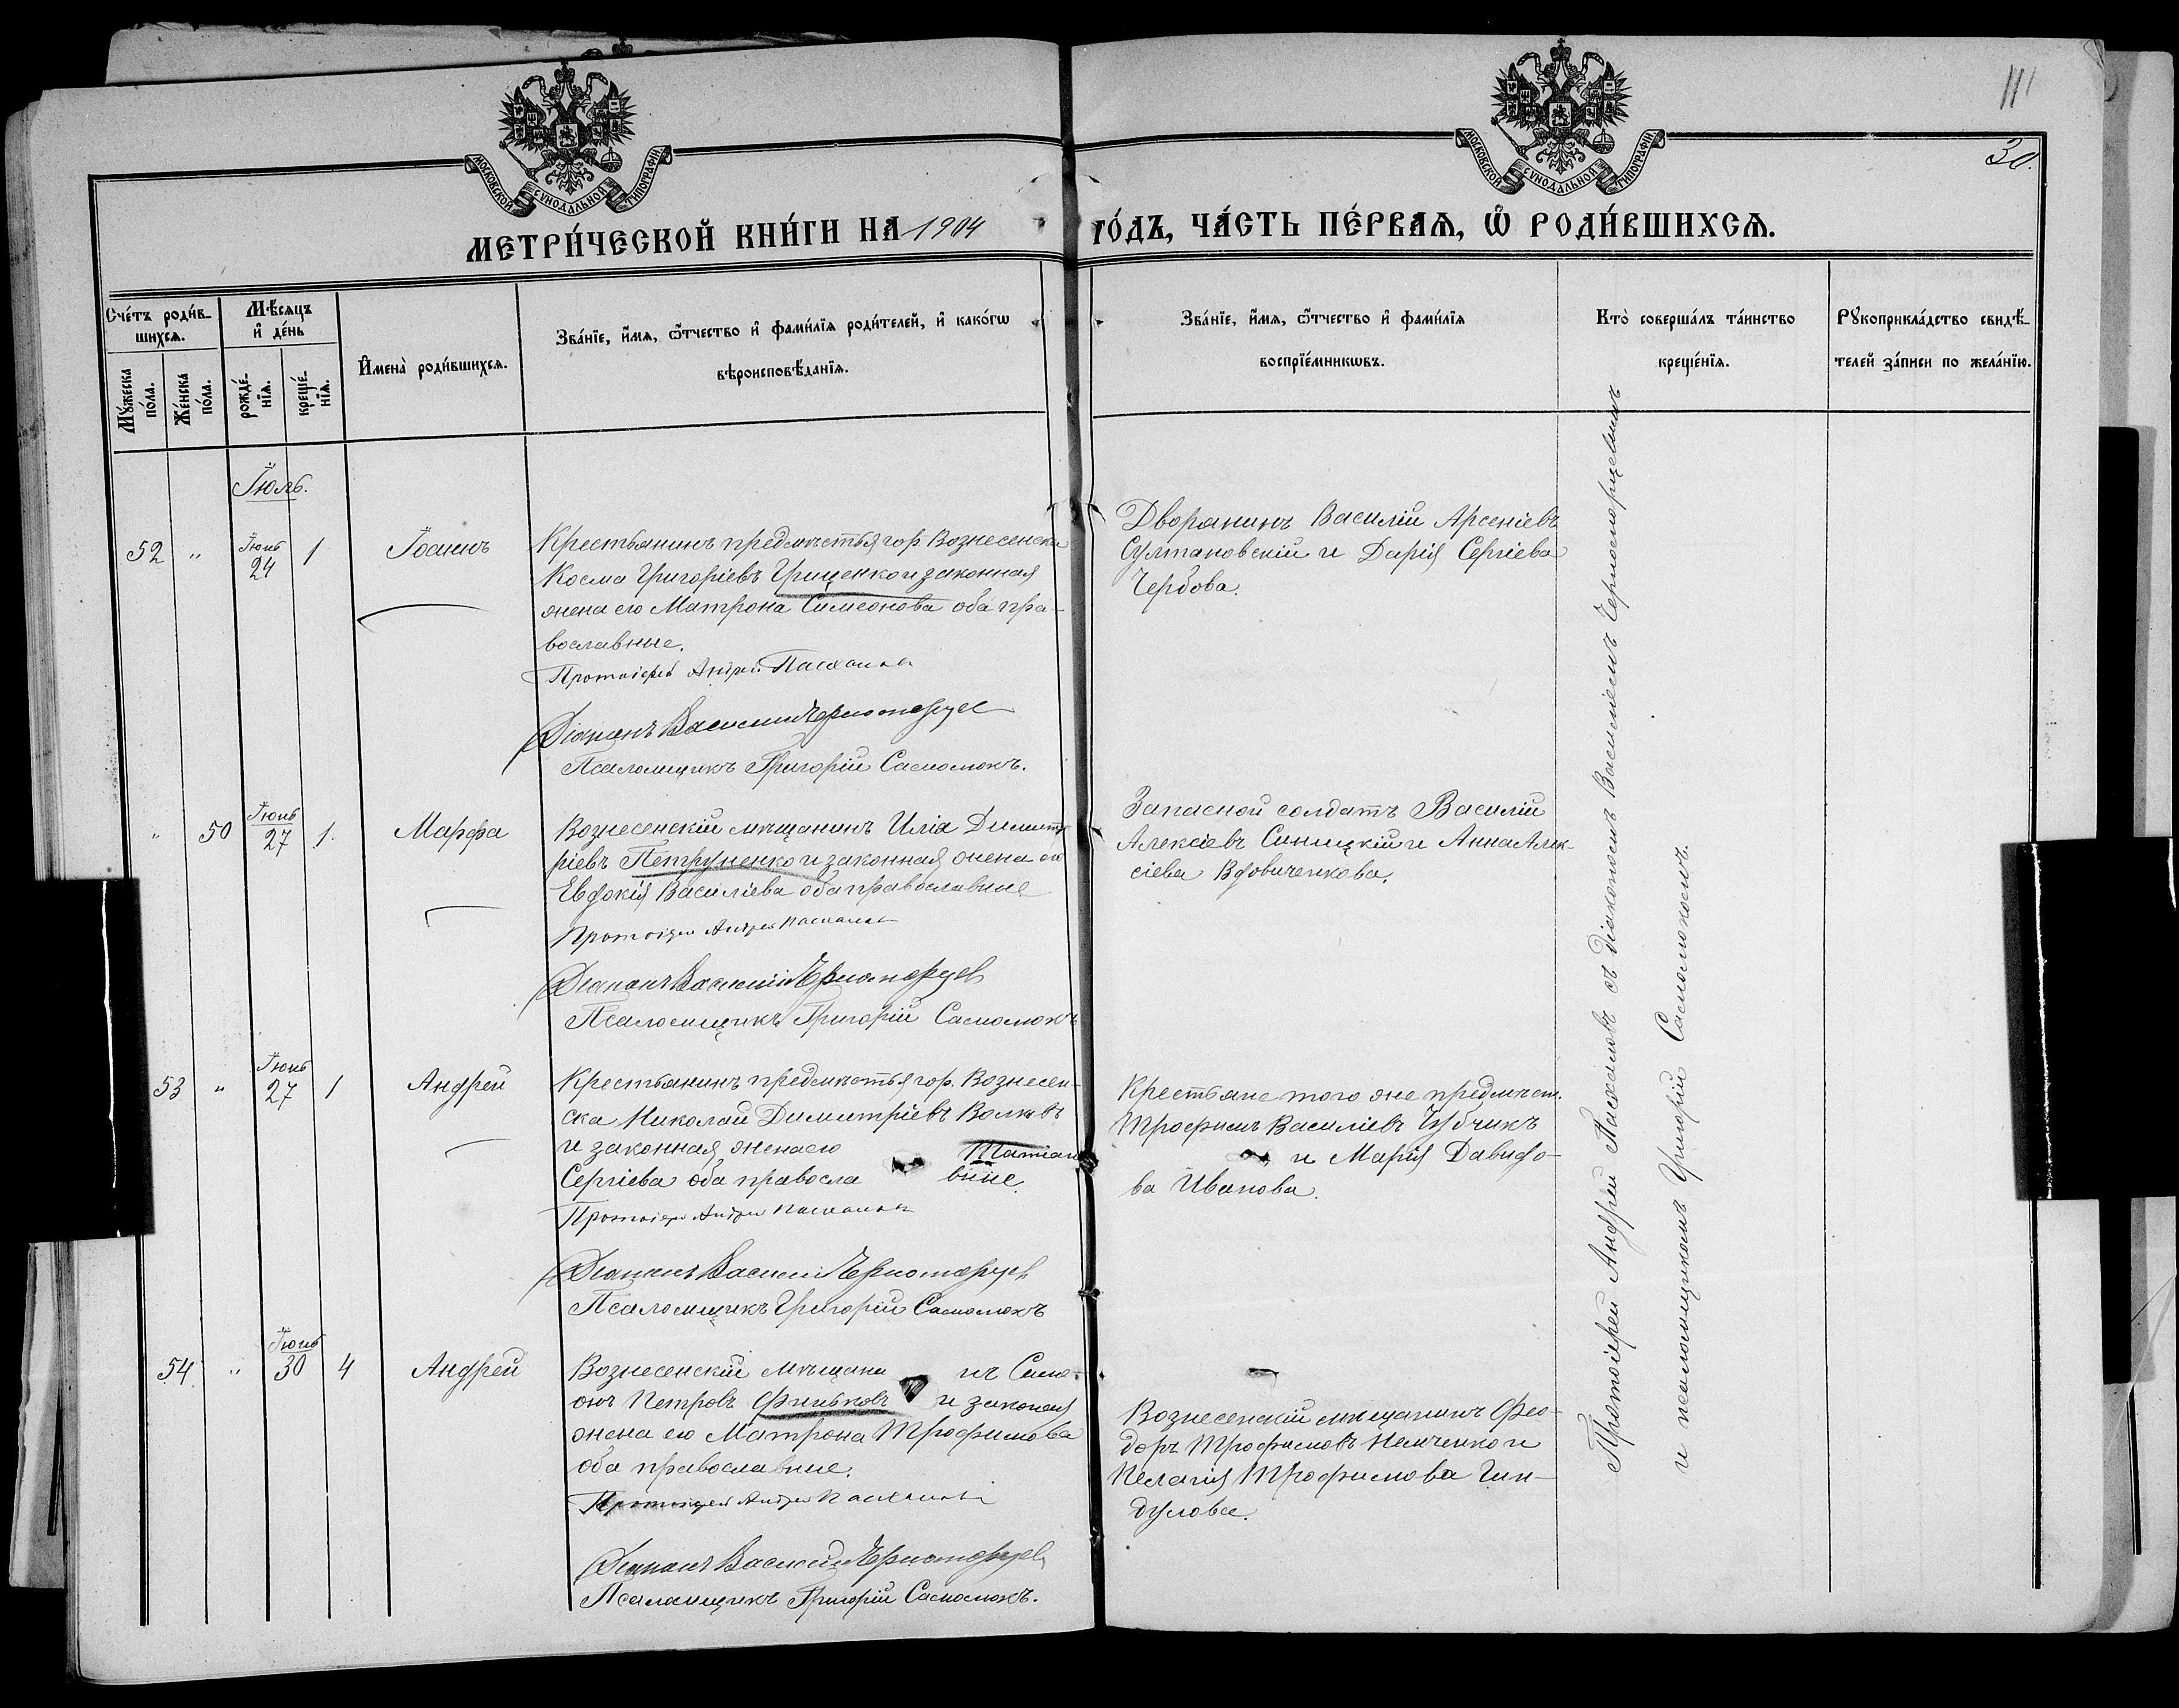 111
30.
МОСКОВСКОЙ СУНОДАЛЬНОЙ ТИПОГРАФІИ.
МОСКОВСКОЙ СУНОДАЛЬНОЙ ТИПОГРАФІИ.
МЕТРИ́ЧЕСКОЙ КНИ́ГИ НА 1904 ГО́ДЪ, ЧА́СТЬ ПЕ́РВАѦ, Ѡ РОДИ́ВШИХСѦ.
Сче́тъ роди́в-
шихсѧ.
Мꙋ́жеска
по́ла.
Же́нска
по́ла.
Мѣ́сѧцъ
и҆ де́нь
рожде́-
нїѧ.
креще́-
нїѧ.
И҆мена̀ роди́вшихсѧ.
Зва́нїе, и҆́мѧ, ѻ҆́тчество и҆ фами́лїѧ роди́телей, и҆ како́гѡ
вѣроисповѣ́данїѧ.
Зва́нїе, и҆́мѧ, ѻ҆́тчество и҆ фами́лїѧ
воспрїе́мникѡвъ.
Кто̀ соверша́лъ та́инство
креще́нїѧ.
Рꙋкоприкла́дство свидѣ́-
телей за́писи по жела́нїю.
Іюль.
52 " Іюнь 24 1 Іоаннъ
Крестьянинъ предмѣстья гор. Вознесенска
Косма Григоріевъ Гриценко и законная
жена его Матрона Симеонова оба пра-
вославные.
Протоіерей Андрей Пасхаловъ
Діаконъ Василій Черноморцев
Псаломщикъ Григорій Самолюкъ.
Дворянинъ Василій Арсеніевъ
Султановскій и Дарія Сергіева
Чербова.
" 50 Іюнь 27 1. Марфа
Вознесенскій мѣщанинъ Илія Димит-
ріевъ Петруненко и законная жена его
Евдокія Василіева оба православные
Протоіерей Андрей Пасхаловъ
Діаконъ Василій Черноморцев
Псаломщикъ Григорій Самолюкъ
Запасной солдатъ Василій
Алексіевъ Синицкій и Анна Алек-
сіева Вдовиченкова.
53 " Іюнь 27 1 Андрей
Крестьянинъ предмѣстья гор. Вознесен-
ска Николай Димитріевъ Волковъ
и законная жена его
Сергіева оба правосла вные.
Протоіерей Андрей Пасхаловъ
Діаконъ Василій Черноморцев
Псаломщикъ Григорій Самолюкъ
Крестьяне того же предмѣст.
Трофимъ Василіевъ Чубчикъ
и Марія Давидо-
ва Иванова.
54 " Іюнь 30 4 Андрей
Вознесенскій мѣщани нъ Симе-
онъ Петровъ Финьковъ и законая
жена его Матрона Трофимова
оба православные.
Протоіерей Андрей Пасхаловъ
Діаконъ Василій Черноморцев
Псаломщикъ Григорій Самолюкъ.
Вознесенскій мѣщанинъ Фео-
доръ Трофимовъ Немченко и
Пелагія Трофимова Гин-
дулова.
Протоіерей Андрей Пасхаловъ съ діакономъ Василіемъ Черноморцевымъ
и псаломщикомъ Григоріи Самолюкомъ.